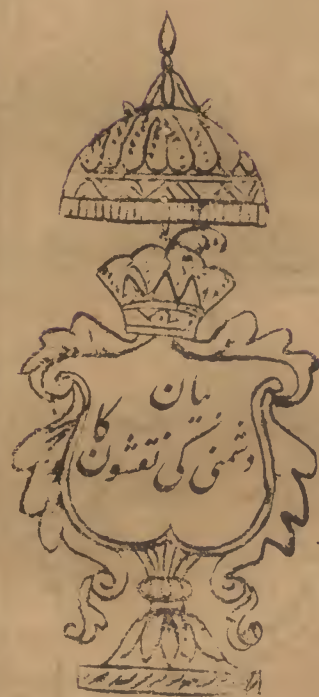 بیان
دشمنی کی نقشون کا